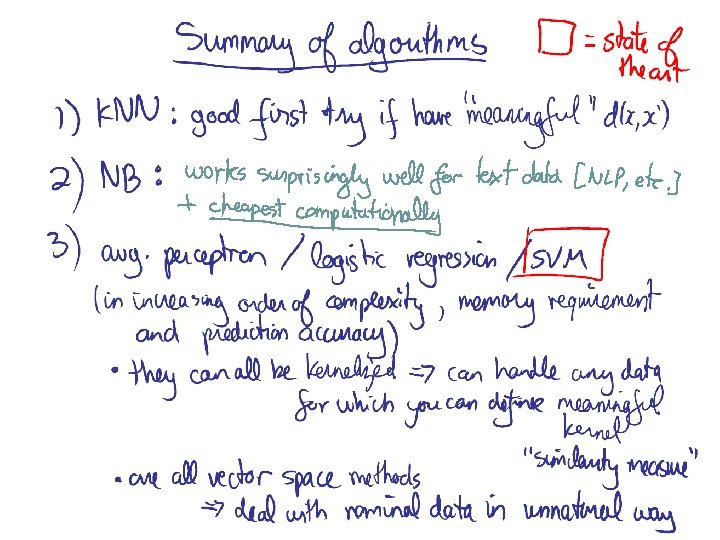 Summary of algorithms
□ = state of the art
1) KNN : good first try if have "meaningful" d(x,x')
2) NB : works surprisingly well for text data [NLP, etc.]
+ cheapest computationally
3) avg. perceptron / logistic regression / SVM
(in increasing order of complexity, memory requirement
and prediction accuracy)
• they can all be kernelized => can handle any data
for which you can define meaningful
kernel
"similarity measure"
• are all vector space methods
=> deal with nominal data in unnatural way